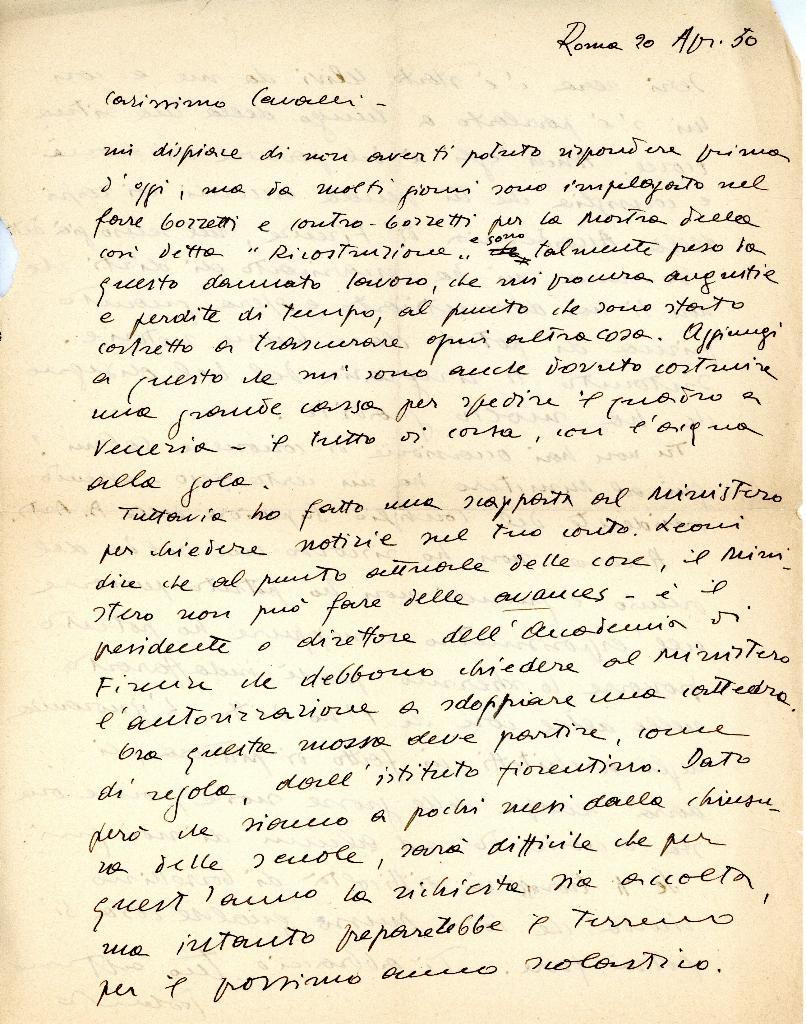 Roma 20 Apr. 50
Carissimo Cavalli -
mi dispiace di non averti potuto rispondere prima
d'oggi, ma da molti giorni sono impelagato nel
fare bozzetti e contro-bozzetti per la Mostra della
così detta "Ricostruzione" e sono talmente preso da
questo dannato lavoro, che mi procura angustie
e perdite di tempo, al punto che sono stato
costretto a trascurare ogni altra cosa. Aggiungi
a questo che mi sono anche dovuto costruire
una grande cassa per spedire il quadro a
Venezia - il tutto di corsa, con l'acqua
alla gola.
Tuttavia ho fatto una scappata al Ministero
per chiedere notizie nel tuo conto. Leoni
dice che al punto attuale delle cose, il Mini-
stero non può fare delle avances - è il
presidente o direttore dell'Accademia di
Firenze che debbono chiedere al Ministero
l'autorizzazione a sdoppiare una cattedra.
Ora questa mossa deve partire, come
di regola, dall'istituto fiorentino. Dato
però che siamo a pochi mesi dalla chiusu-
ra delle scuole, sarà difficile che per
quest'anno la richiesta sia accolta,
ma intanto preparerebbe il terreno
per il prossimo anno scolastico.